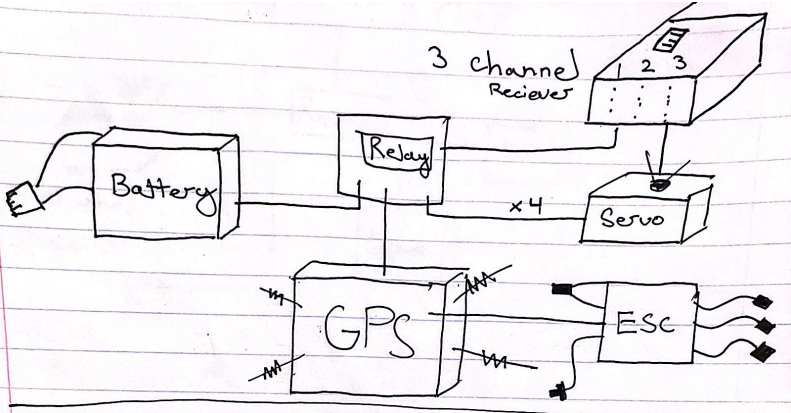 3 channel
Reciever
1 2 3
Relay
Battery
x4
Servo
GPS
ESC